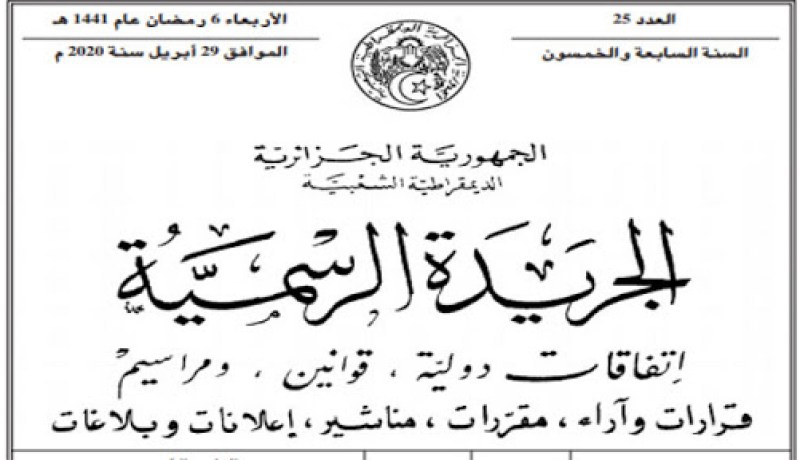 العدد 25
الأربعاء 6 رمضان عام 1441 هـ
السنة السابعة والخمسون
الموافق 29 أبريل سنة 2020 م
الجمهورية الجزائرية
الديمقراطية الشعبية
الجريدة الرسمية
إتفاقات دولية ، قوانين ، ومراسيم
قرارات وآراء ، مقررات ، مناشير ، إعلانات وبلاغات